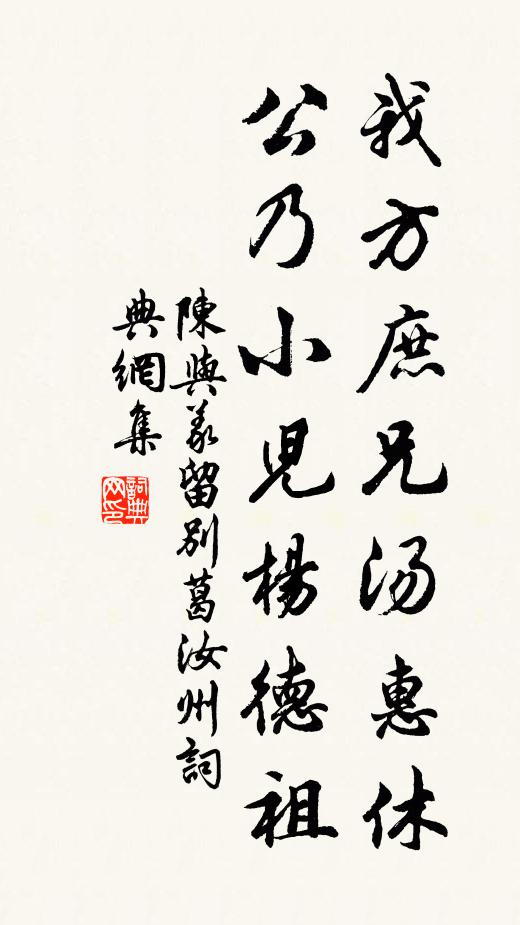 我方庶兄汤惠休
公乃小児楊德祖
陳與義留別葛汝州詞
典網集
詞典
网印